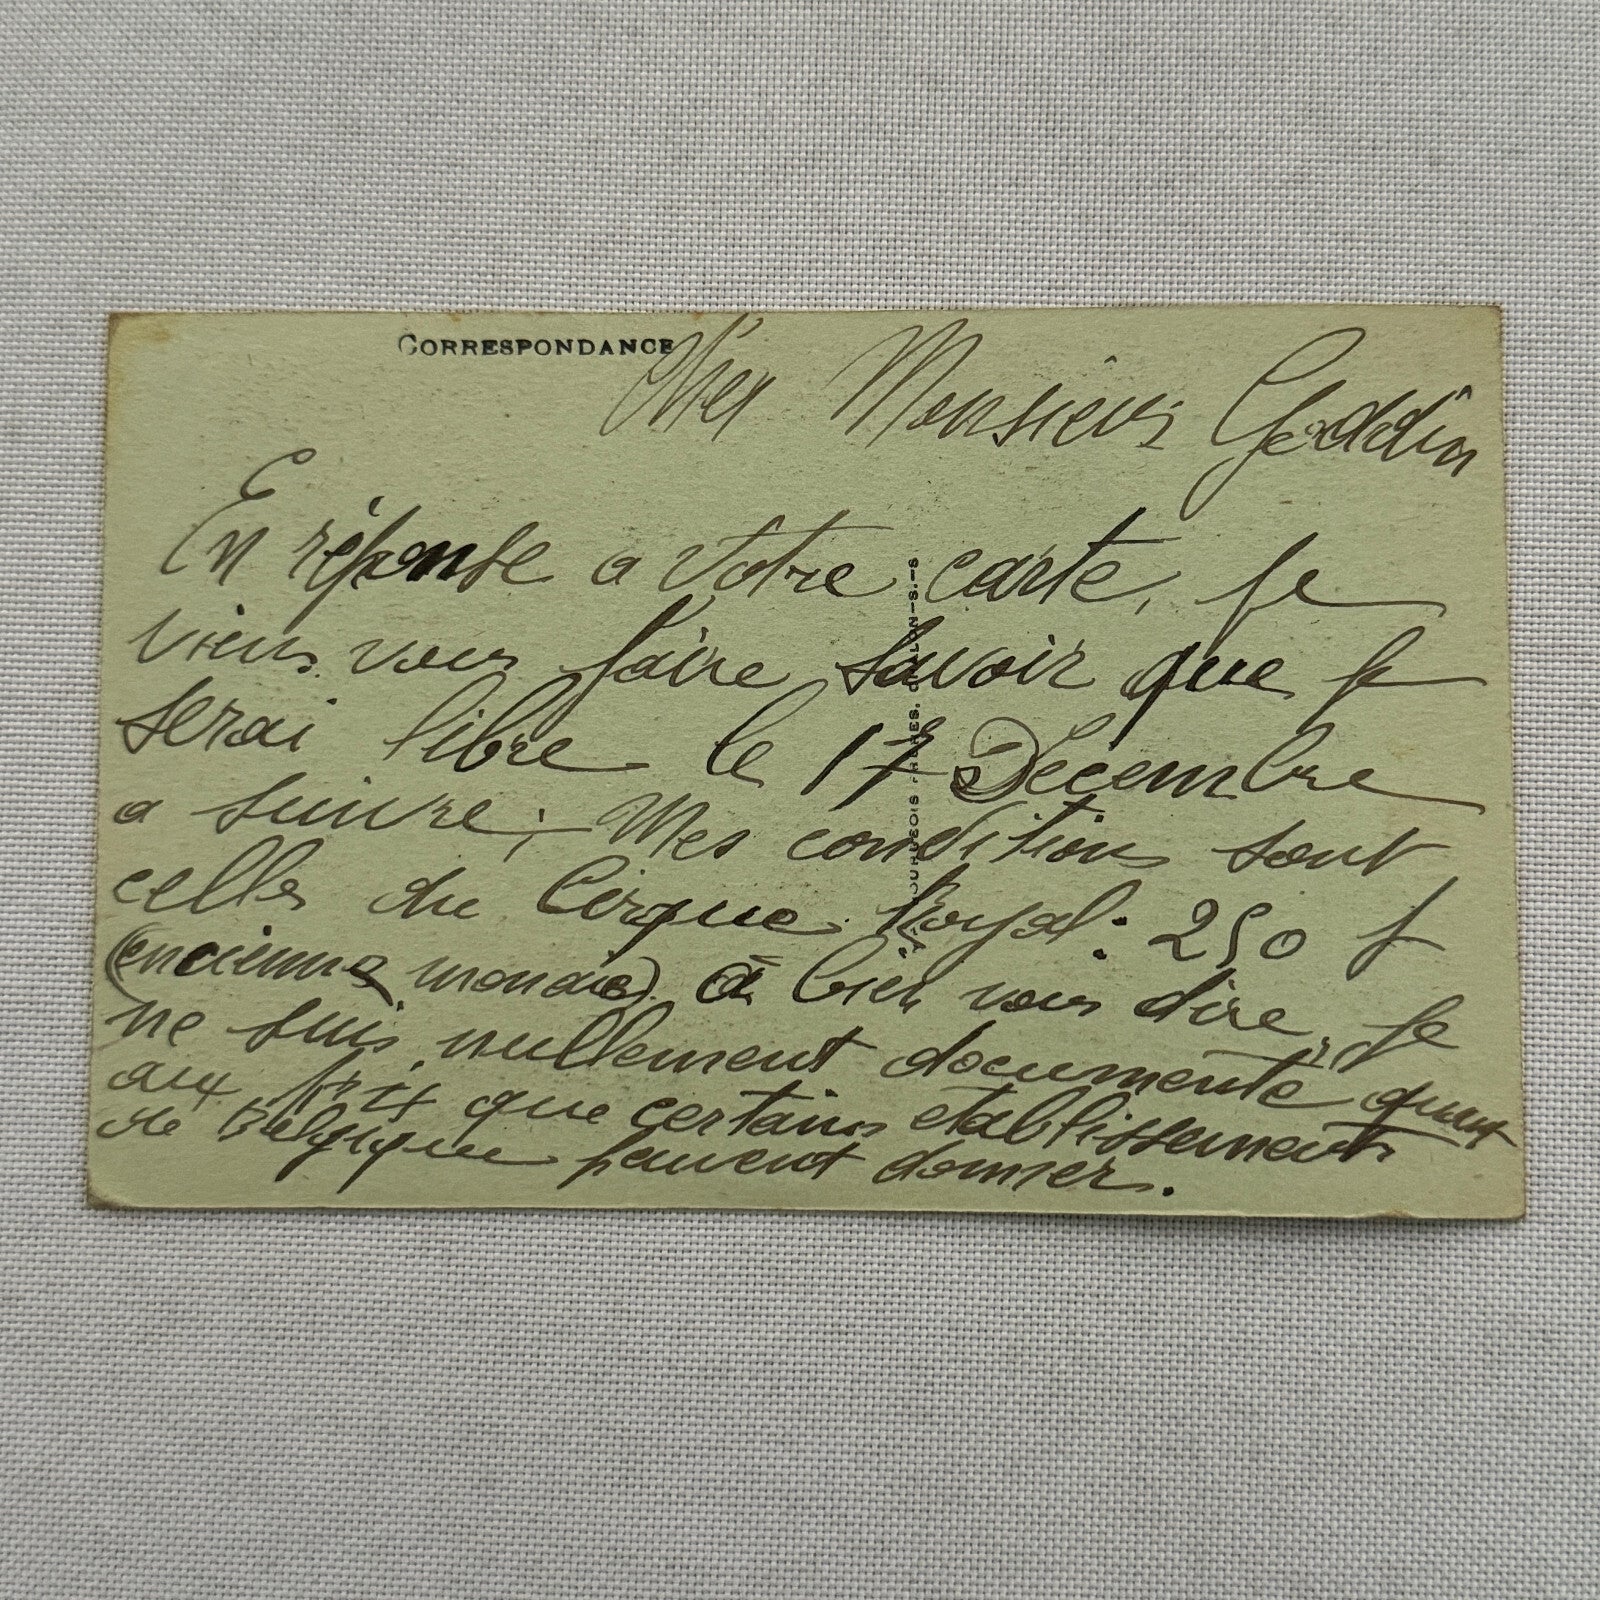 CORRESPONDANCE
Cher Monsieur Goddin
En réponse a votre carte, je
viens vous faire savoir que je
serai libre le 17 Décembre
a suivre; Mes conditions sont
celles du Cirque Royal: 250 f
(encienne monaie) à bien vous dire, je
ne suis nullement documenté quant
aux prix que certains etablissements
de Belgique peuvent donner.
CHALON-S.-S